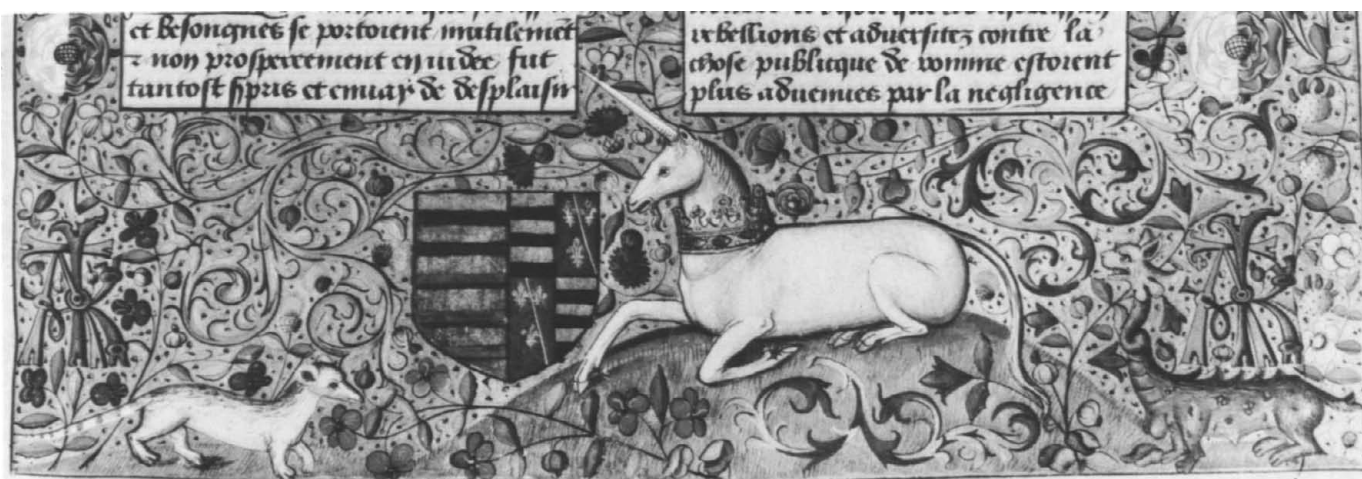 et besongnes se portoient inutilemēt
z non prosperement en iudee fut
tantost spris et enuay de desplaisir
rebellions et aduersitez contre la
chose publicque de romme estoient
plus aduenues par la negligence